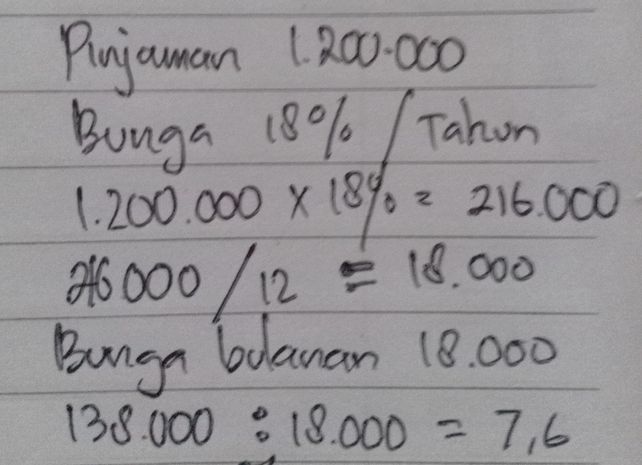 Pinjaman 1.200.000
Bunga 18% / Tahun
1.200.000 x 18% = 216.000
216000 / 12 = 18.000
Bunga bulanan 18.000
138.000 : 18.000 = 7,6